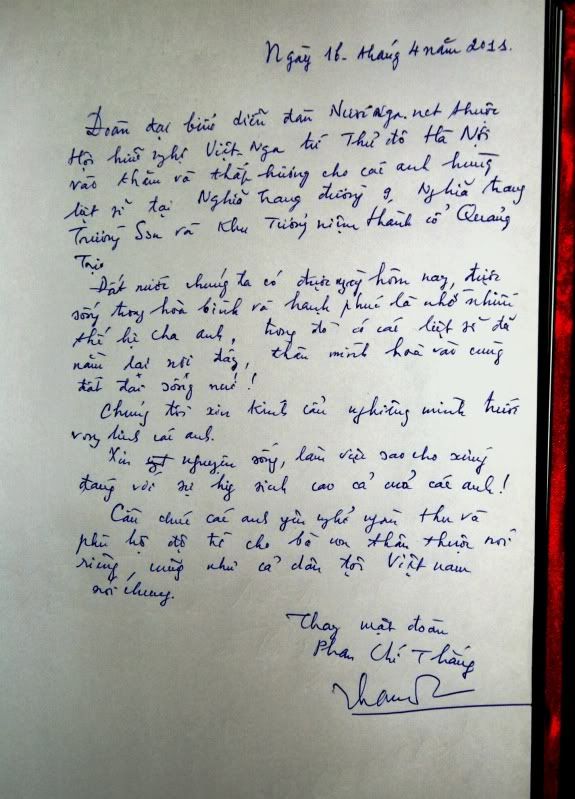 Ngày 16 tháng 4 năm 2011.
Đoàn đại biểu diễn đàn Nuocnga.net thuộc
Hội hữu nghị Việt Nga từ Thủ đô Hà Nội
vào thăm và thắp hương cho các anh hùng
liệt sĩ tại Nghĩa trang đường 9, Nghĩa trang
Trường Sơn và Khu Tưởng niệm thành cổ Quảng
Trị.
Đất nước chúng ta có được ngày hôm nay, được
sống trong hoà bình và hạnh phúc là nhờ nhiều
thế hệ cha anh, trong đó có các liệt sĩ đã
nằm lại nơi đây, thân mình hoà vào cùng
đất đai sông núi!
Chúng tôi xin kính cẩn nghiêng mình trước
vong linh các anh.
Xin nguyện sống, làm việc sao cho xứng
đáng với sự hy sinh cao cả của các anh!
Cầu chúc các anh yên nghỉ ngàn thu và
phù hộ độ trì cho bà con thân thuộc nói
riêng, cũng như cả dân tộc Việt nam
nói chung.
Thay mặt đoàn
Phan Chí Thắng